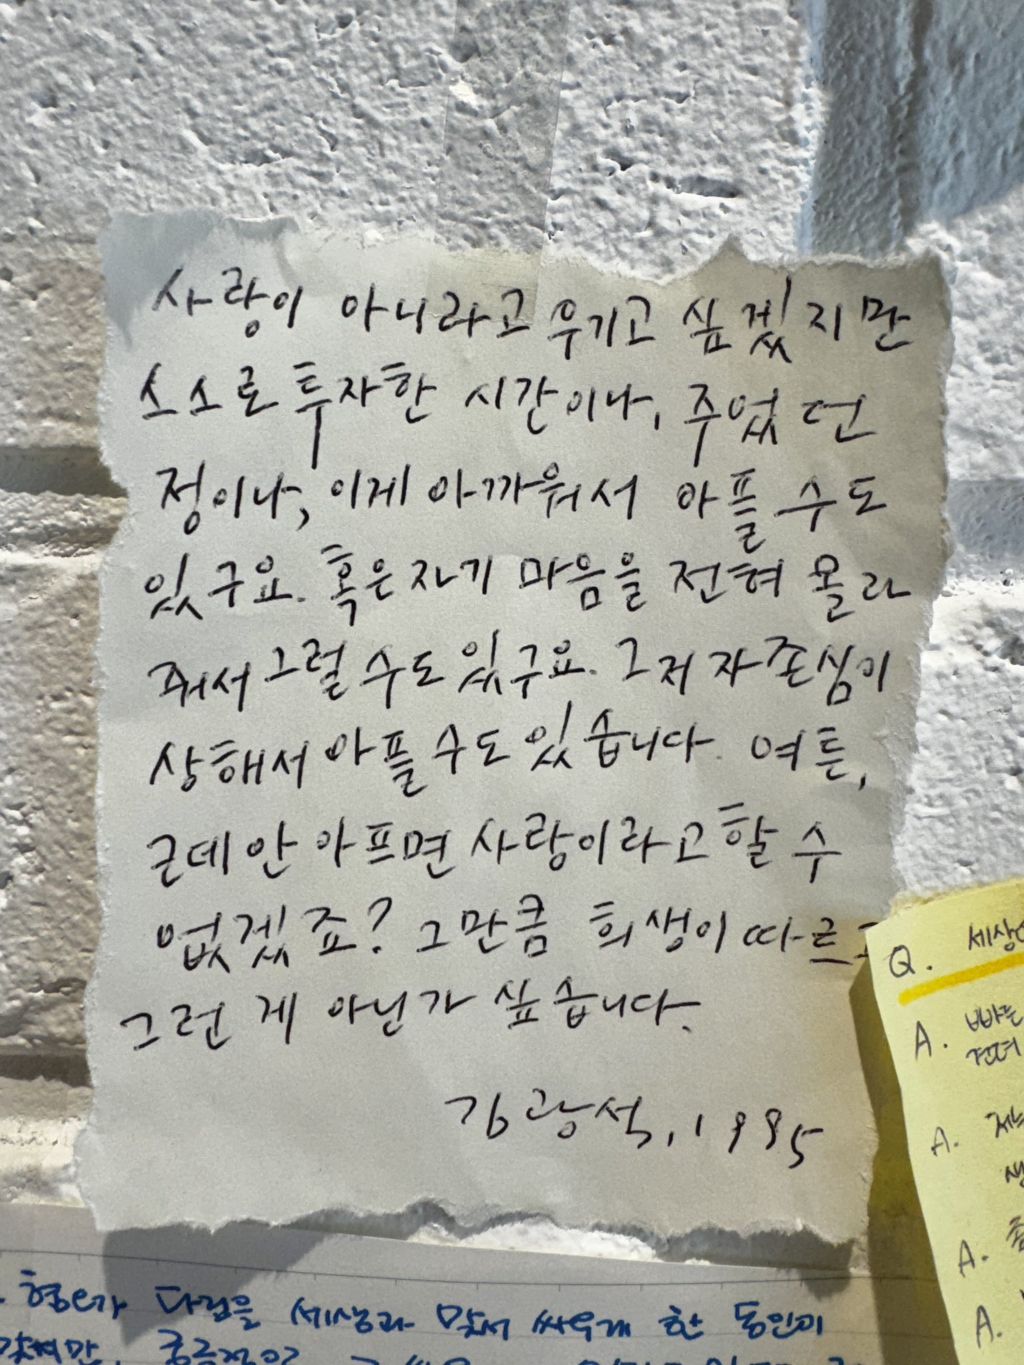 사랑이 아니라고 우기고 싶겠지만
스스로 투자한 시간이나, 주었던
정이나, 이게 아까워서 아플 수도
있구요. 혹은 자기 마음을 전혀 몰라
줘서 그럴 수도 있구요. 그저 자존심이
상해서 아플 수도 있습니다. 여튼,
근데 안 아프면 사랑이라고 할 수
없겠죠? 그만큼 희생이 따르
그런 게 아닌가 싶습니다.
김광석, 1995
Q. 세상
A. 빠른
A.
A.
A.
다짐을 세상과 맞서 싸우게 한 동인이